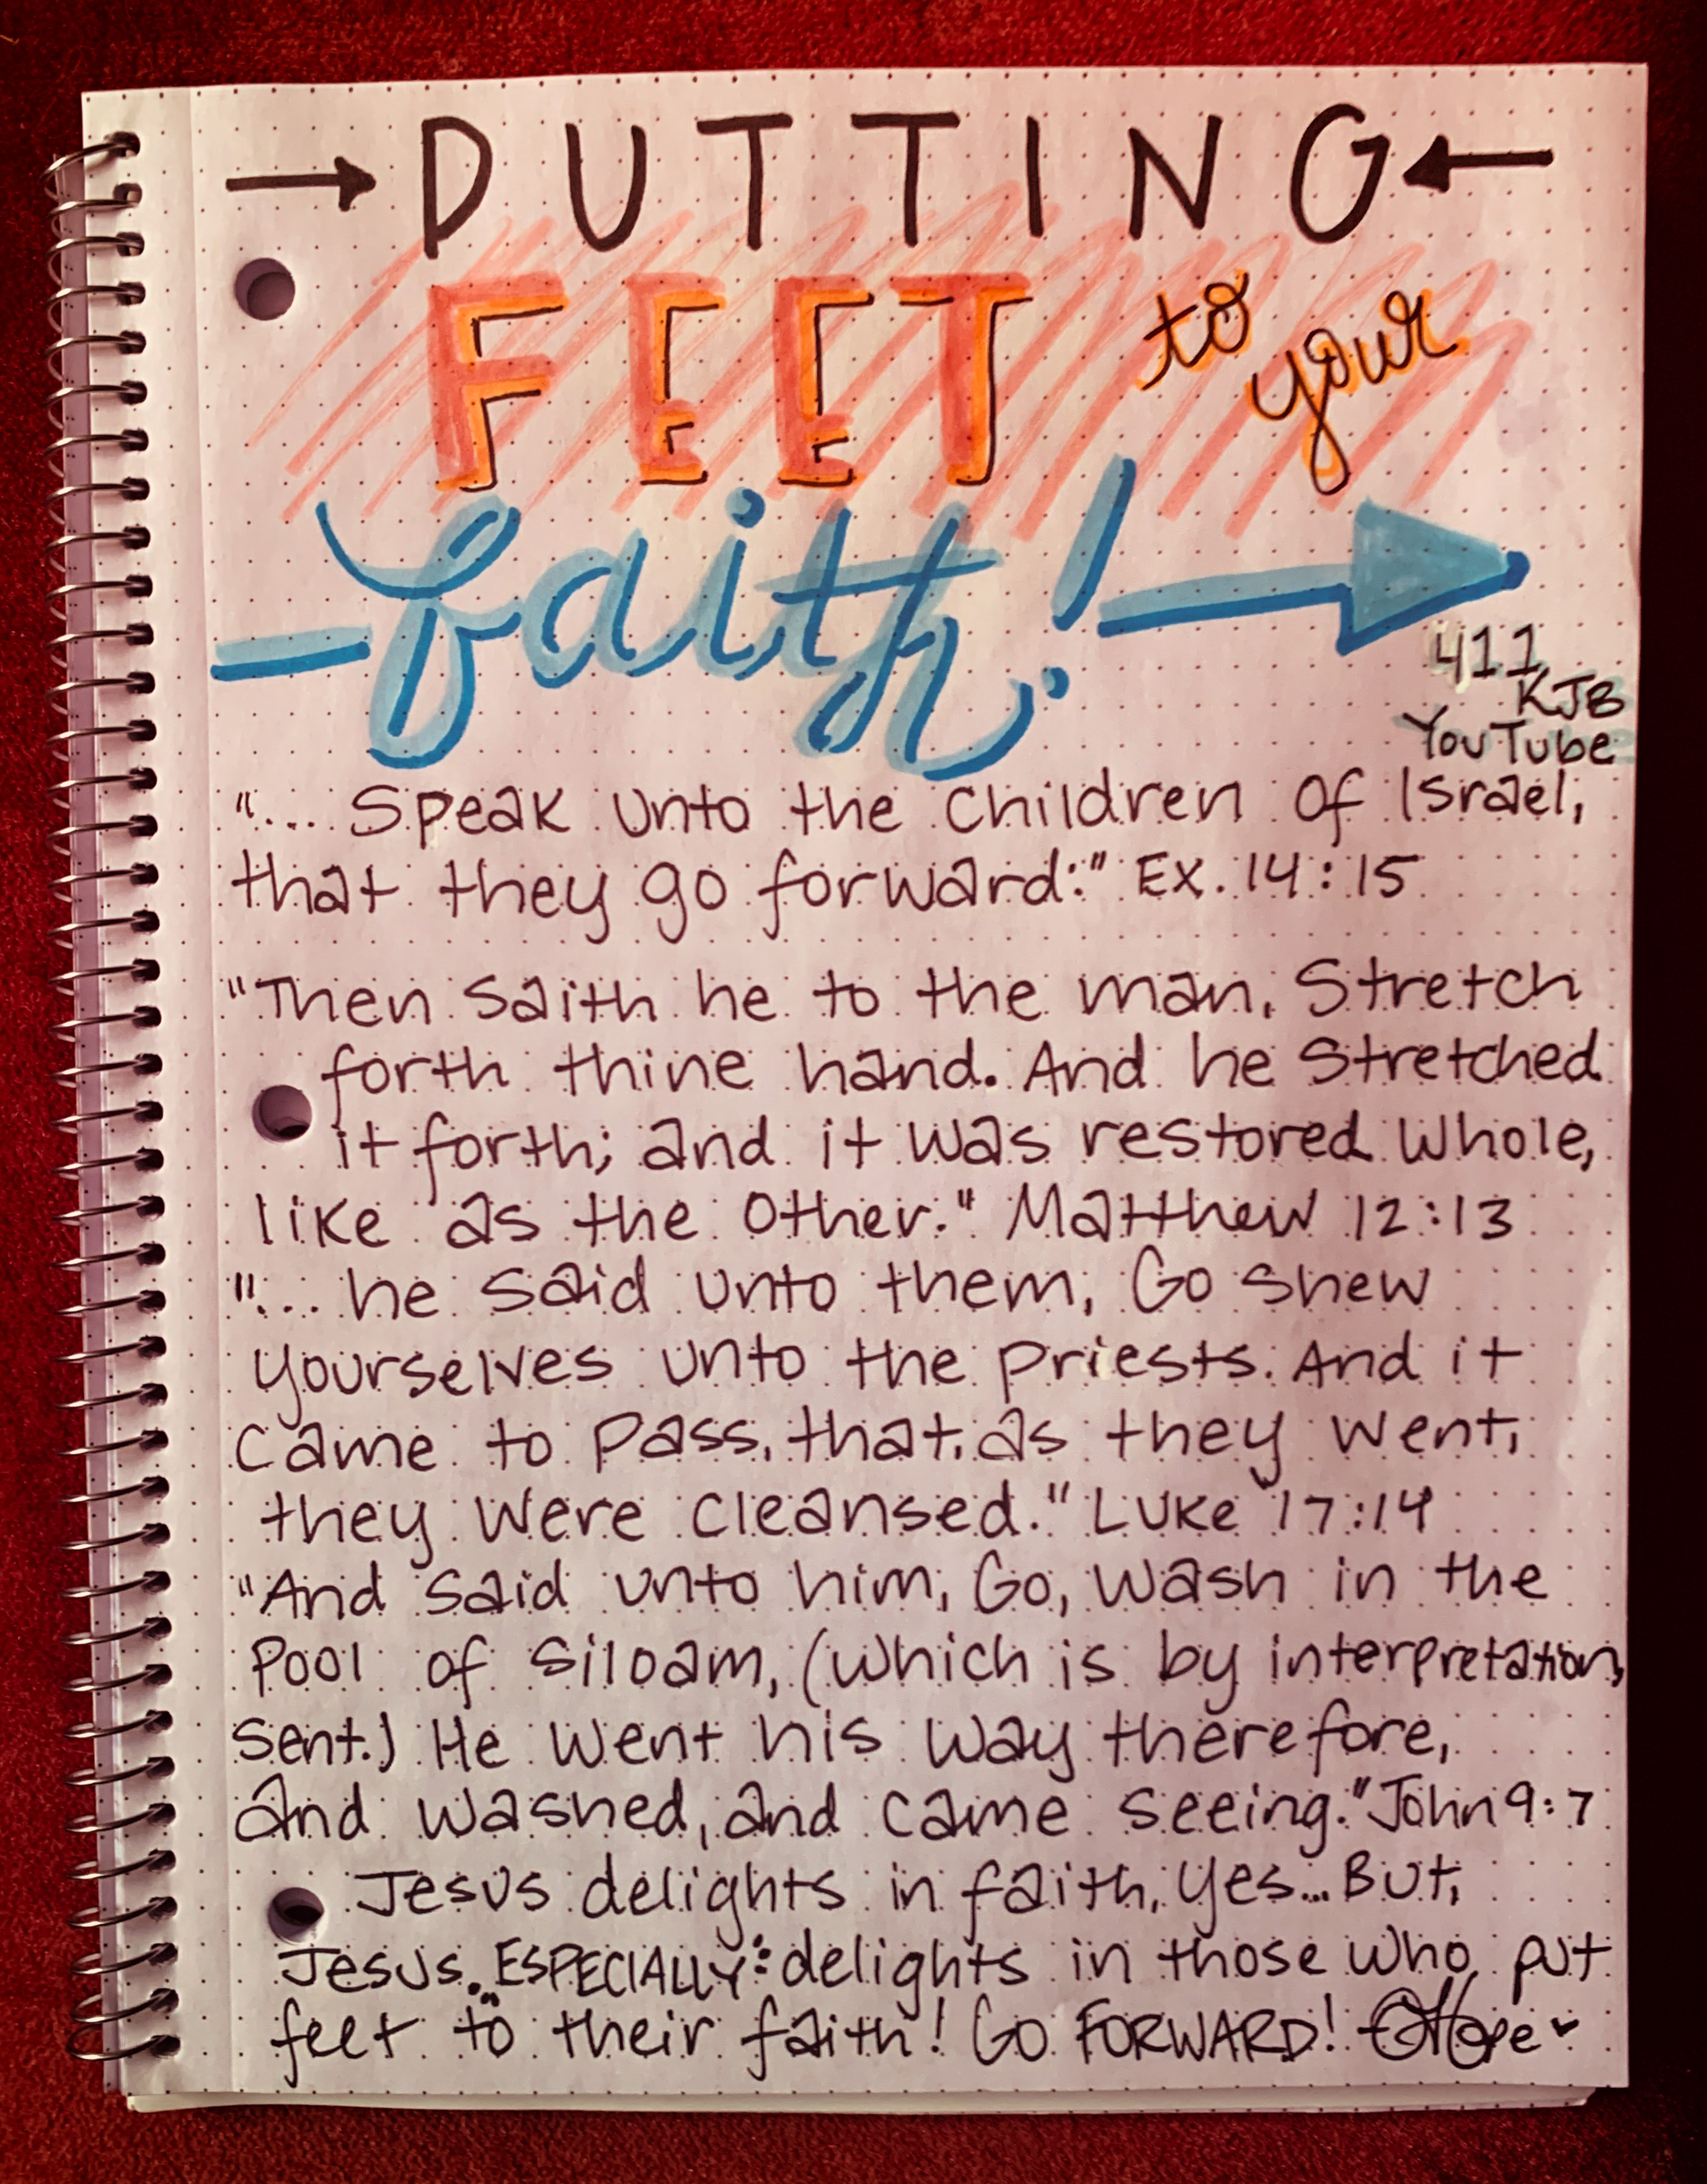 → PUTTING ←
FEET to your
faith!
411
KJB
YouTube
"... Speak unto the children of Israel,
that they go forward:" Ex. 14:15
"Then saith he to the man, Stretch
forth thine hand. And he stretched
it forth; and it was restored whole,
like as the other." Matthew 12:13
"... he said unto them, Go shew
yourselves unto the priests. And it
came to pass, that, as they went,
they were cleansed." Luke 17:14
"And said unto him, Go, wash in the
pool of Siloam, (which is by interpretation,
Sent.) He went his way therefore,
and washed, and came seeing." John 9:7
Jesus delights in faith, yes... But,
Jesus ESPECIALLY delights in those who put
feet to their faith! Go FORWARD!